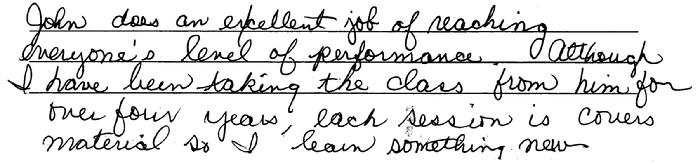 John does an excellent job of reaching
everyone's level of performance. Although
I have been taking the class from him for
over four years, each session is covers
material so I learn something new